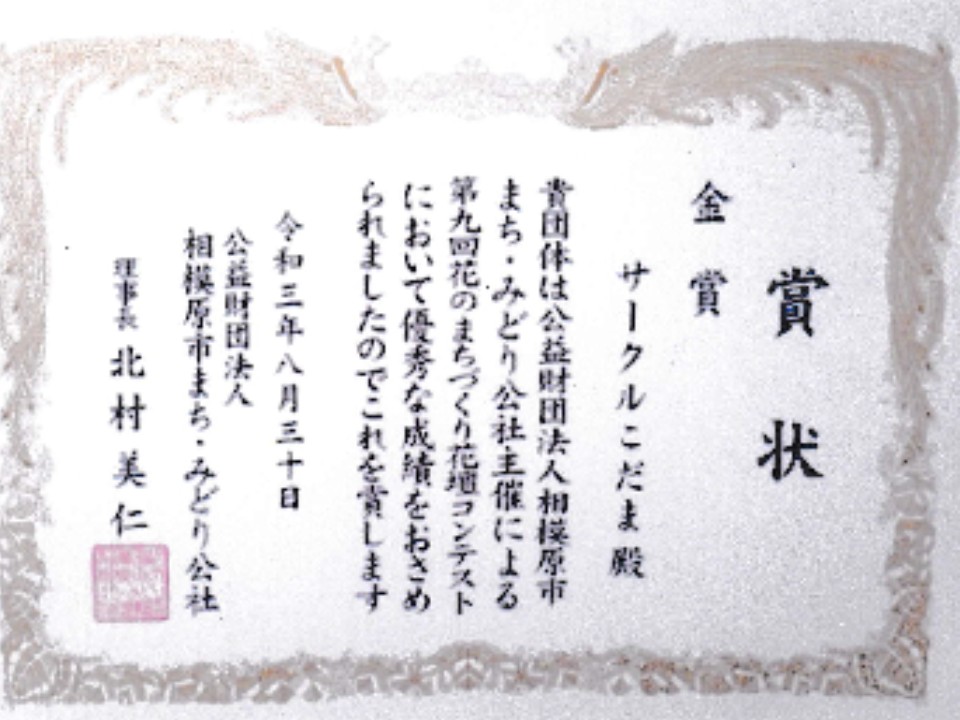 賞状
金賞
サークルこだま 殿
貴団体は公益財団法人相模原市
まち・みどり公社主催による
第九回花のまちづくり花壇コンテスト
において優秀な成績をおさめ
られましたのでこれを賞します
令和三年八月三十日
公益財団法人
相模原市まち・みどり公社
理事長 北村美仁